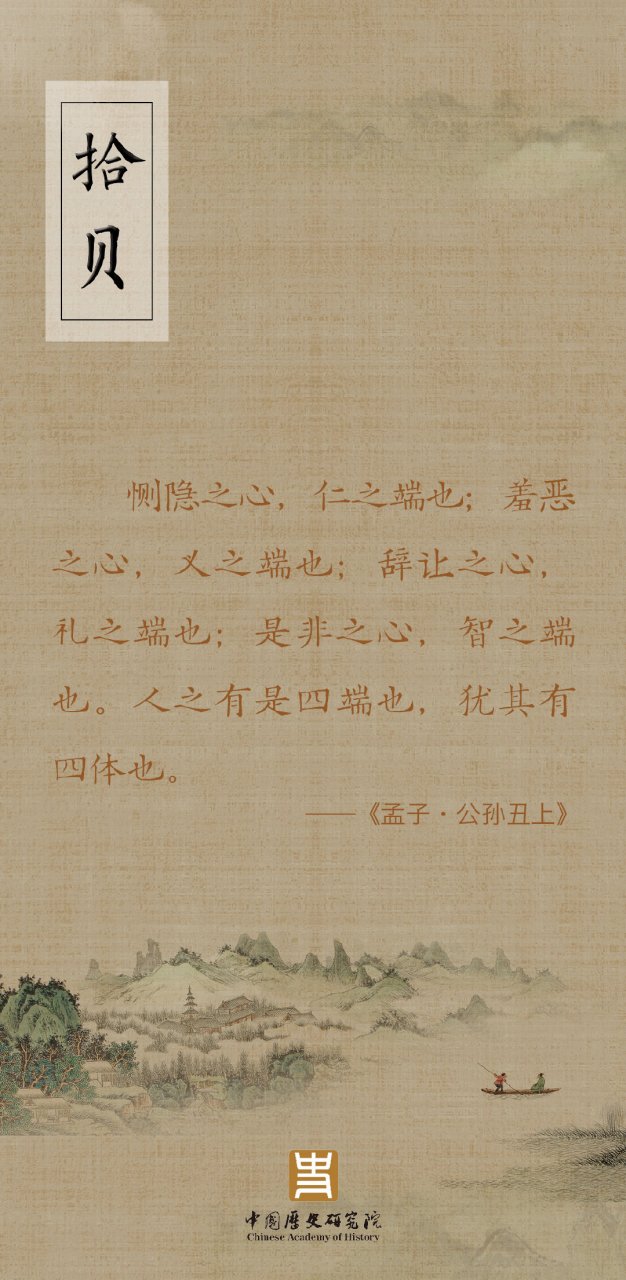 拾贝
恻隐之心，仁之端也；羞恶
之心，义之端也；辞让之心，
礼之端也；是非之心，智之端
也。人之有是四端也，犹其有
四体也。
——《孟子·公孙丑上》
中国历史研究院
Chinese Academy of History